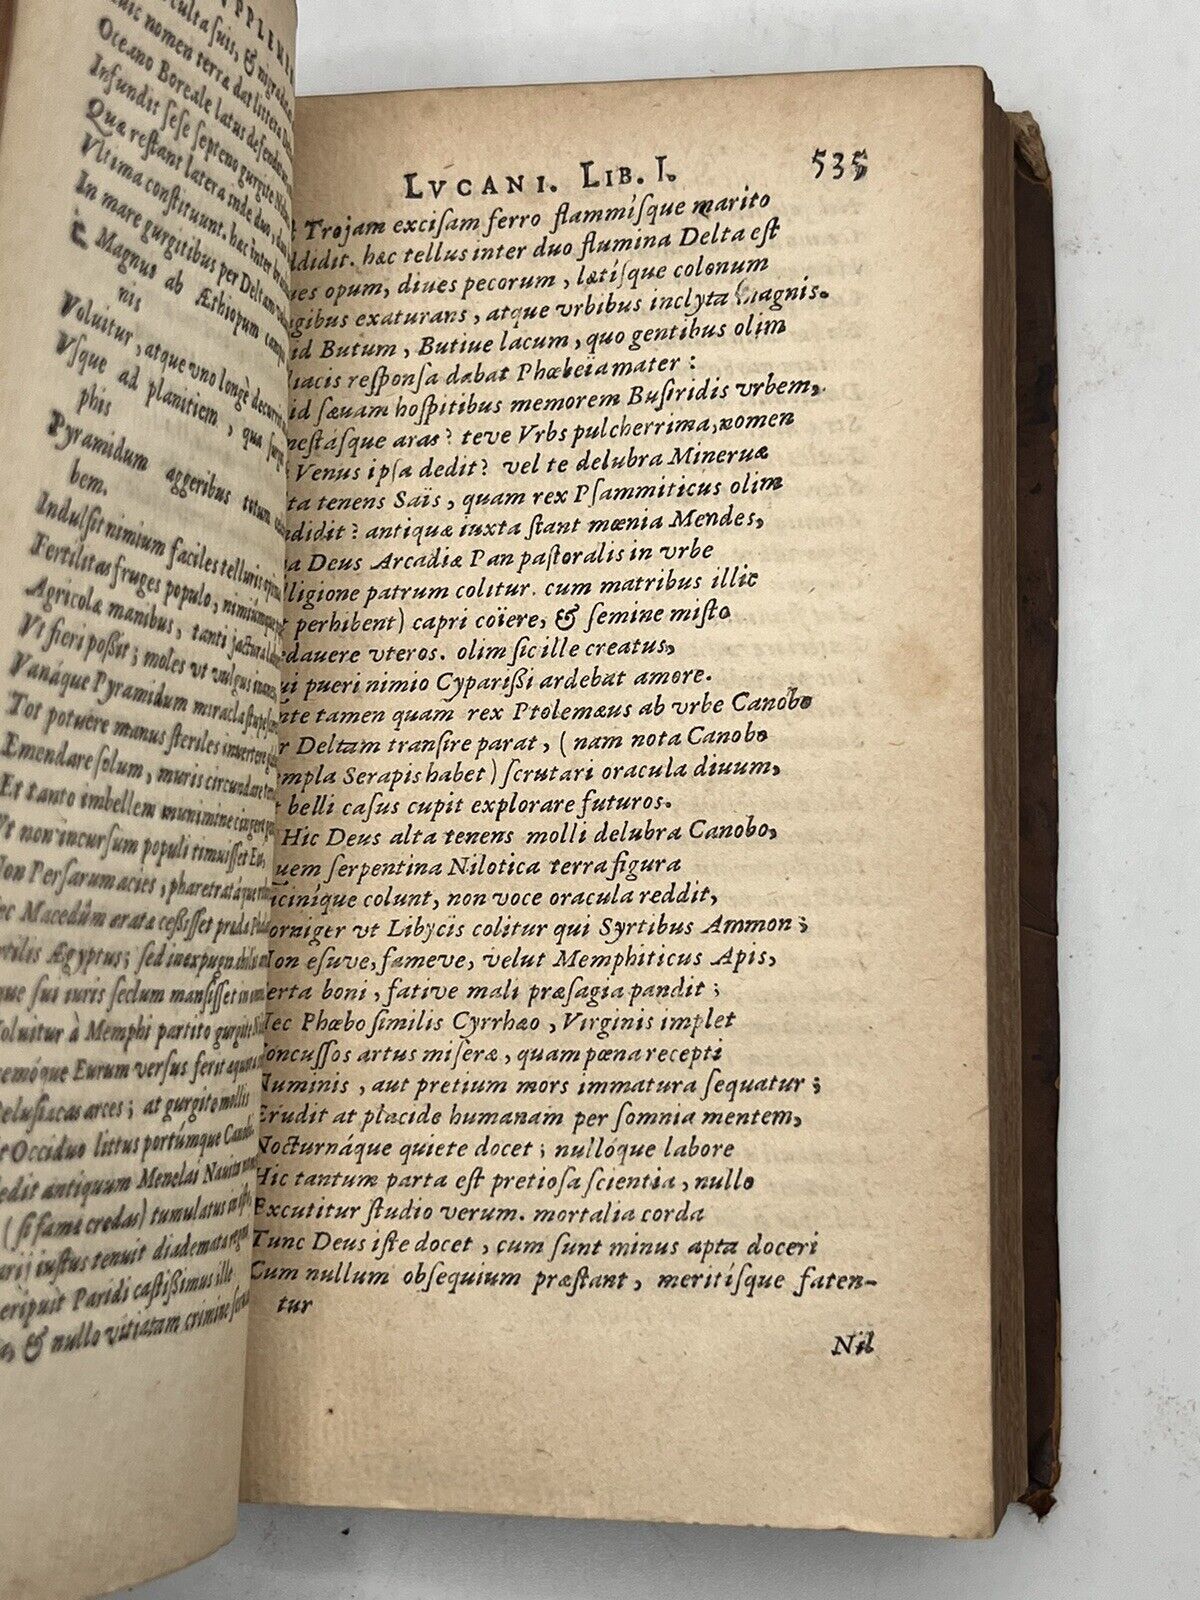 Oceano Boreale latus defend
Infundit sese septeno gurgite
Quæ restant latera inde duo,
Vltima constituunt. hæc inter
In mare gurgitibus per Deltam
Magnus ab Æthiopum
nis
Voluitur, atque vno longè decurrit
Vsque ad planitiem, qua
phis
Pyramidum aggeribus totum
bem.
Indulsit nimium faciles telluris
Fertilitas fruges populo,
Agricolæ manibus, tanti jactura
Vt fieri poßit; moles vt vulgus
Vanáque Pyramidum miracla
Tot potuere manus steriles invertere
Emendare solum, muris circundare
Et tanto imbellem munimine cingere
Vt non incursum populi timuisset
Non Persarum acies, pharetratáque
Macedûm arata ceßisset præda
Ægyptus; sed inexpugn
que sui iuris seclum mansisset in
Voluitur à Memphi partito gurgite
emóque Eurum versus ferit
Pelusiacas arces; at gurgite mollis
Occiduo littus portúmque
antiquum Menelai Nauita
(si fama credas) tumulatus
iustus tenuit diademata
eripuit Paridi castißimus ille
& nullo vitiatam crimine
LVCANI. LIB. I. 535
Trojam excisam ferro flammísque marito
ddidit. hæc tellus inter duo flumina Delta est
ues opum, diues pecorum, lætísque colonum
gibus exaturans, atque vrbibus inclyta magnis.
id Butum, Butiue lacum, quo gentibus olim
liacis responsa dabat Phœbeïa mater:
id sæuam hospitibus memorem Busiridis vrbem,
nestásque aras? teve Vrbs pulcherrima, nomen
Venus ipsa dedit? vel te delubra Mineruæ
ta tenens Saïs, quam rex Psammiticus olim
ndidit? antiquæ iuxta stant mœnia Mendes,
a Deus Arcadiæ Pan pastoralis in vrbe
lligione patrum colitur. cum matribus illic
t perhibent) capri coïere, & semine misto
edauere vteros. olim sic ille creatus,
ui pueri nimio Cyparißi ardebat amore.
nte tamen quam rex Ptolemæus ab vrbe Canobo
r Deltam transire parat, (nam nota Canobo
empla Serapis habet) scrutari oracula diuum,
t belli casus cupit explorare futuros.
Hic Deus alta tenens molli delubra Canobo,
uem serpentina Nilotica terra figura
iciníque colunt, non voce oracula reddit,
orniger vt Libycis colitur qui Syrtibus Ammon;
Non esuve, fameve, velut Memphiticus Apis,
erta boni, fative mali præsagia pandit;
Nec Phœbo similis Cyrrhæo, Virginis implet
Concussos artus miseræ, quam pœna recepti
Numinis, aut pretium mors immatura sequatur;
Erudit at placide humanam per somnia mentem,
Nocturnáque quiete docet; nullóque labore
Hic tantum parta est pretiosa scientia, nullo
Excutitur studio verum. mortalia corda
Tunc Deus iste docet, cum sunt minus apta doceri
Cum nullum obsequium præstant, meritísque faten-
tur
Nil